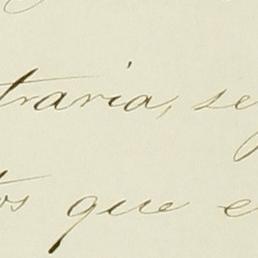 traria, se
tos que e